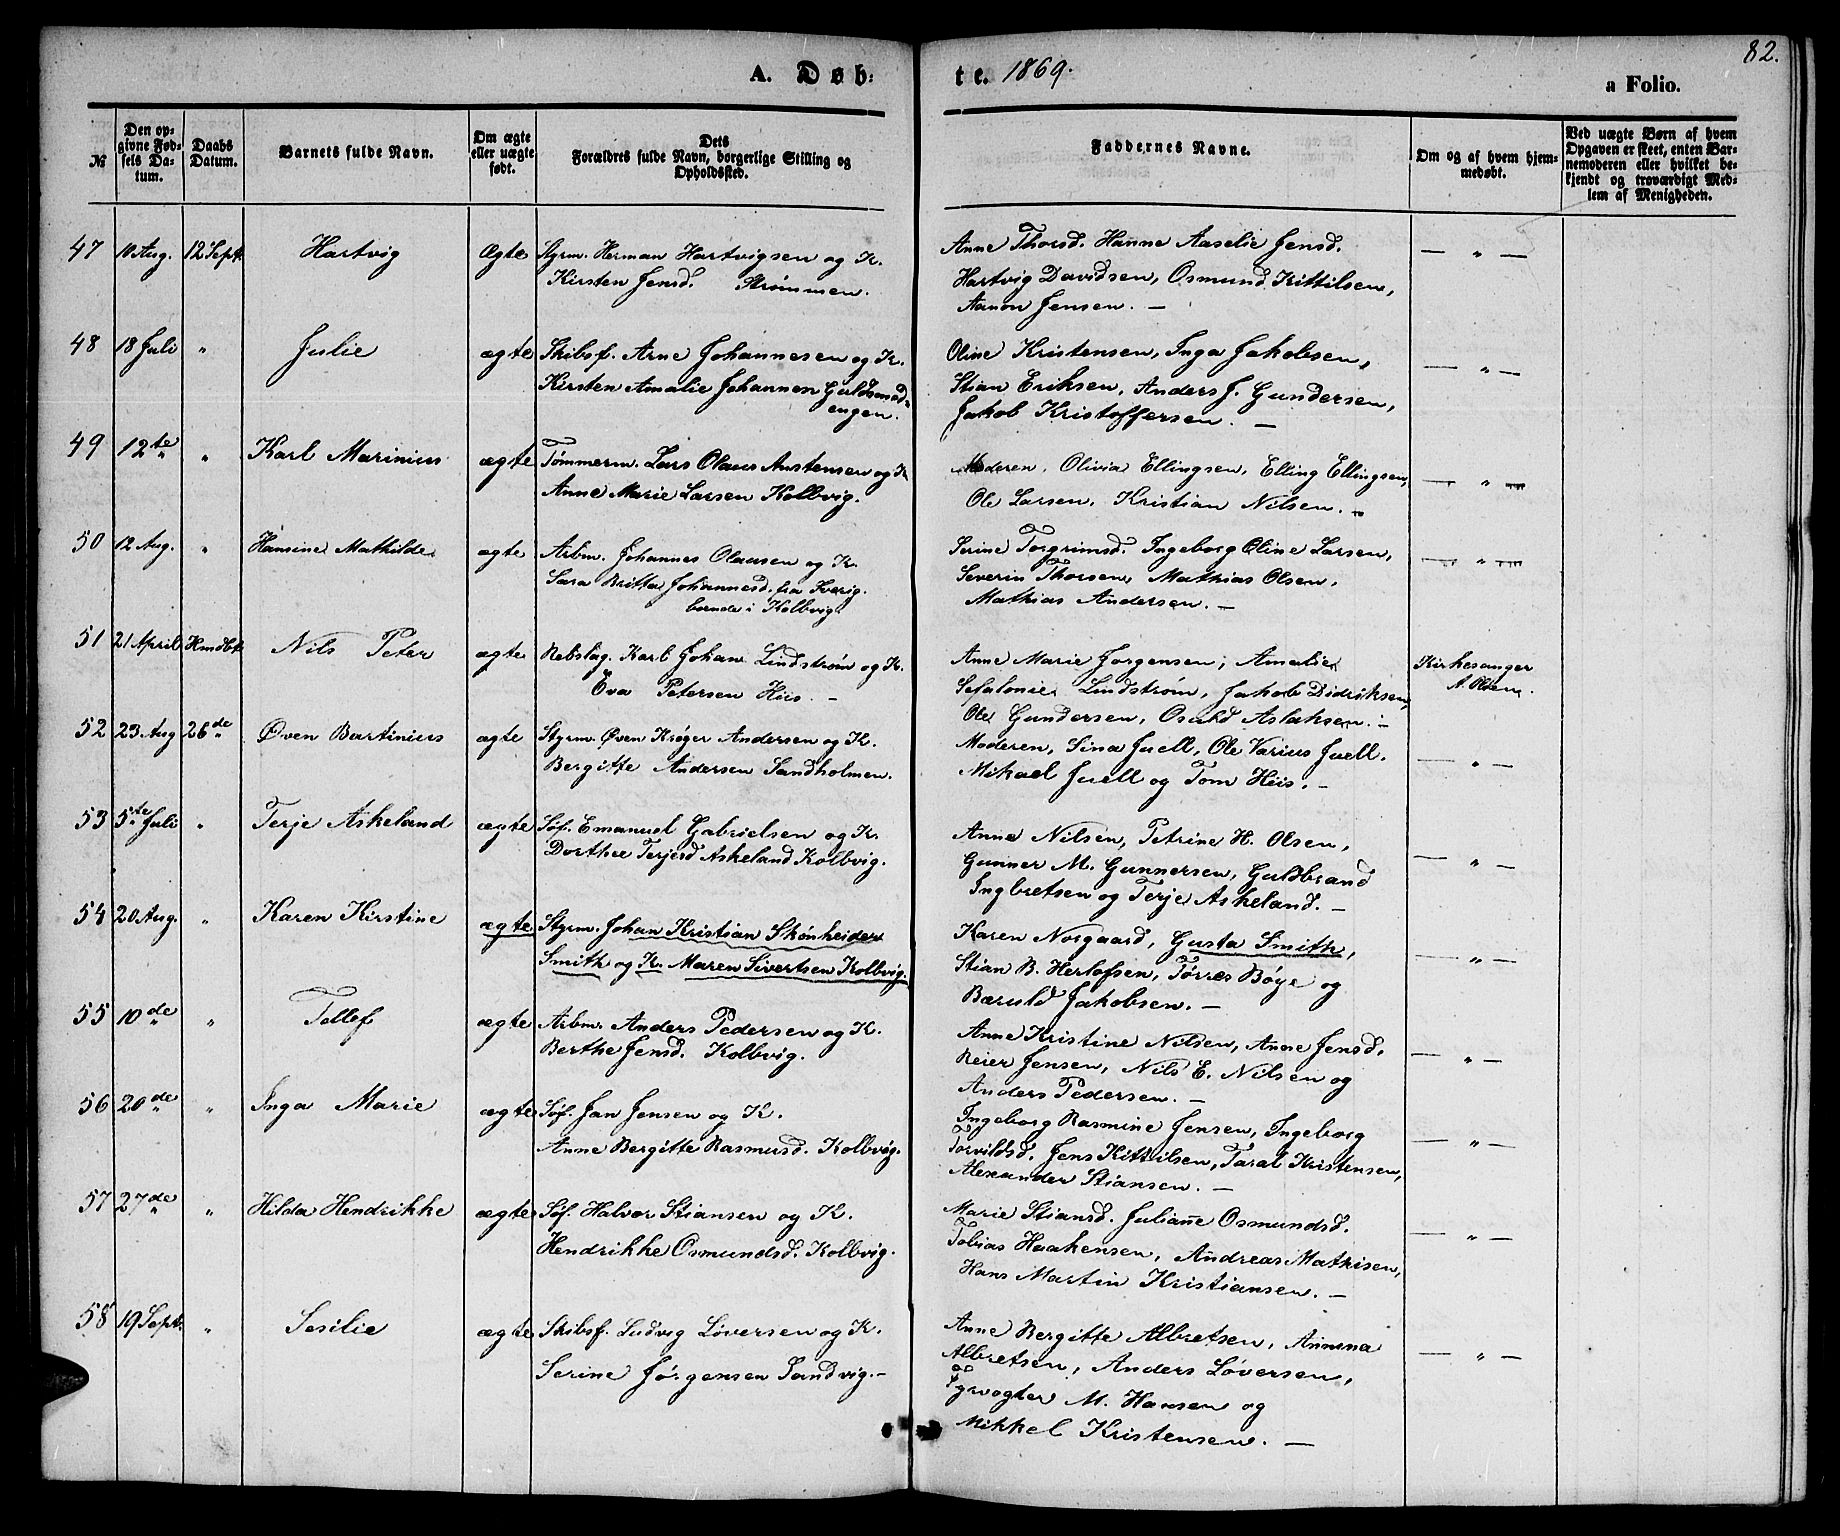 82.
A. Døb-
te. 1869.
a Folio.
№
Den op-
givne Fød-
sels Da-
tum.
Daabs
Datum.
Barnets fulde Navn.
Om ægte
eller uægte
født.
Dets
Forældres fulde Navn, borgerlige Stilling og
Opholdssted.
Faddernes Navne.
Om og af hvem hjem-
medøbt.
Ved uægte Børn af hvem
Opgaven er skeet, enten Bar-
nemoderen eller hvilket be-
kjendt og troværdigt Med-
lem af Menigheden.
47 10 Aug. 12 Sept. Hartvig Ægte Styrm. Herman Hartvigsen og K.
Kirsten Jensd. Strømmen.
Anne Thorsd. Hanne Aaselie Jensd.
Hartvig Davidsen, Osmund Kittilsen,
Aanon Jensen. —
— " —
48 18 Juli " Julie ægte Skibsf. Arne Johannesen og K.
Kirsten Amalie Johannen Guldsmed-
engen.
Oline Kristensen, Inga Jakobsen,
Stian Eriksen, Anders J. Gundersen,
Jakob Kristoffersen. —
— " —
49 12te " Karl Marinius ægte Tømmerm. Lars Olaus Austensen og K.
Anne Marie Larsen Kolbvig.
Moderen, Olivia Ellingsen, Elling Ellingsen,
Ole Larsen, Kristian Nilsen. —
— " —
50 12 Aug. " Hansine Mathilde ægte Arbm. Johannes Olausen og K.
Sara Britta Johannesd. fra Sverig.
boende i Kolbvig.
Serine Torgrimsd. Ingeborg Oline Larsen,
Severin Thorsen, Mathias Olsen,
Mathias Andersen. —
— " —
51 21 April Hmdbt. Nils Peter ægte Rebslag. Karl Johan Lindstrøm og K.
Eva Petersen Hiis. —
Anne Marie Jørgensen, Amalie
Sefalonie Lindstrøm, Jakob Didriksen,
Ole Gundersen, Osuld Aslaksen. —
Kirkesanger
A. Olsen.
52 23 Aug 26de Øven Bartinius ægte Styrm. Øven Krøger Andersen og K.
Bergitte Andersen Sandholmen.
Moderen, Sina Juell, Ole Varius Juell.
Mikael Juell og Tom Hiis. —
— " —
53 5te Juli " Terje Askeland ægte Søf. Emanuel Gabrielsen og K.
Dorthee Terjesd Askeland Kolbvig.
Anne Nilsen, Petrine H. Olsen,
Gunner M. Gunnersen, Guldbrand
Ingbretsen og Terje Askeland. —
— " —
54 20 Aug. " Karen Kirstine ægte Styrm. Johan Kristian Skønheider
Smith og K. Maren Sivertsen Kolbvig.
Karen Norgaard, Gusta Smith,
Stian B. Herlofsen, Tørres Bøye og
Bæruld Jakobsen. —
— " —
55 10de " Tellef ægte Arbm. Anders Pedersen og K.
Berthe Jensd. Kolbvig.
Anne Kristine Nilsen, Anne Jensd.
Reier Jensen, Nils E. Nilsen og
Anders Pedersen. —
— " —
56 20de " Inga Marie ægte Søf. Jan Jensen og K.
Anne Bergitte Rasmusd. Kolbvig.
Ingeborg Rasmine Jensen, Ingeborg
Torvildsd. Jens Kittilsen, Taral Kristensen,
Alexander Stiansen. —
— " —
57 27de " Hilda Hendrikke ægte Søf. Halvor Stiansen og K.
Hendrikke Osmundsd. Kolbvig.
Marie Stiansd. Julianne Osmundsd.
Tobias Haakensen, Andreas Mathisen,
Hans Martin Kristiansen. —
— " —
58 19 Sept. " Sesilie ægte Skibsf. Ludvig Løversen og K.
Serine Jørgensen Sandvig. —
Anne Bergitte Albretsen, Annena
Albretsen, Anders Løversen,
Fyrvogter M. Hansen og
Mikkel Kristensen. —
— " —